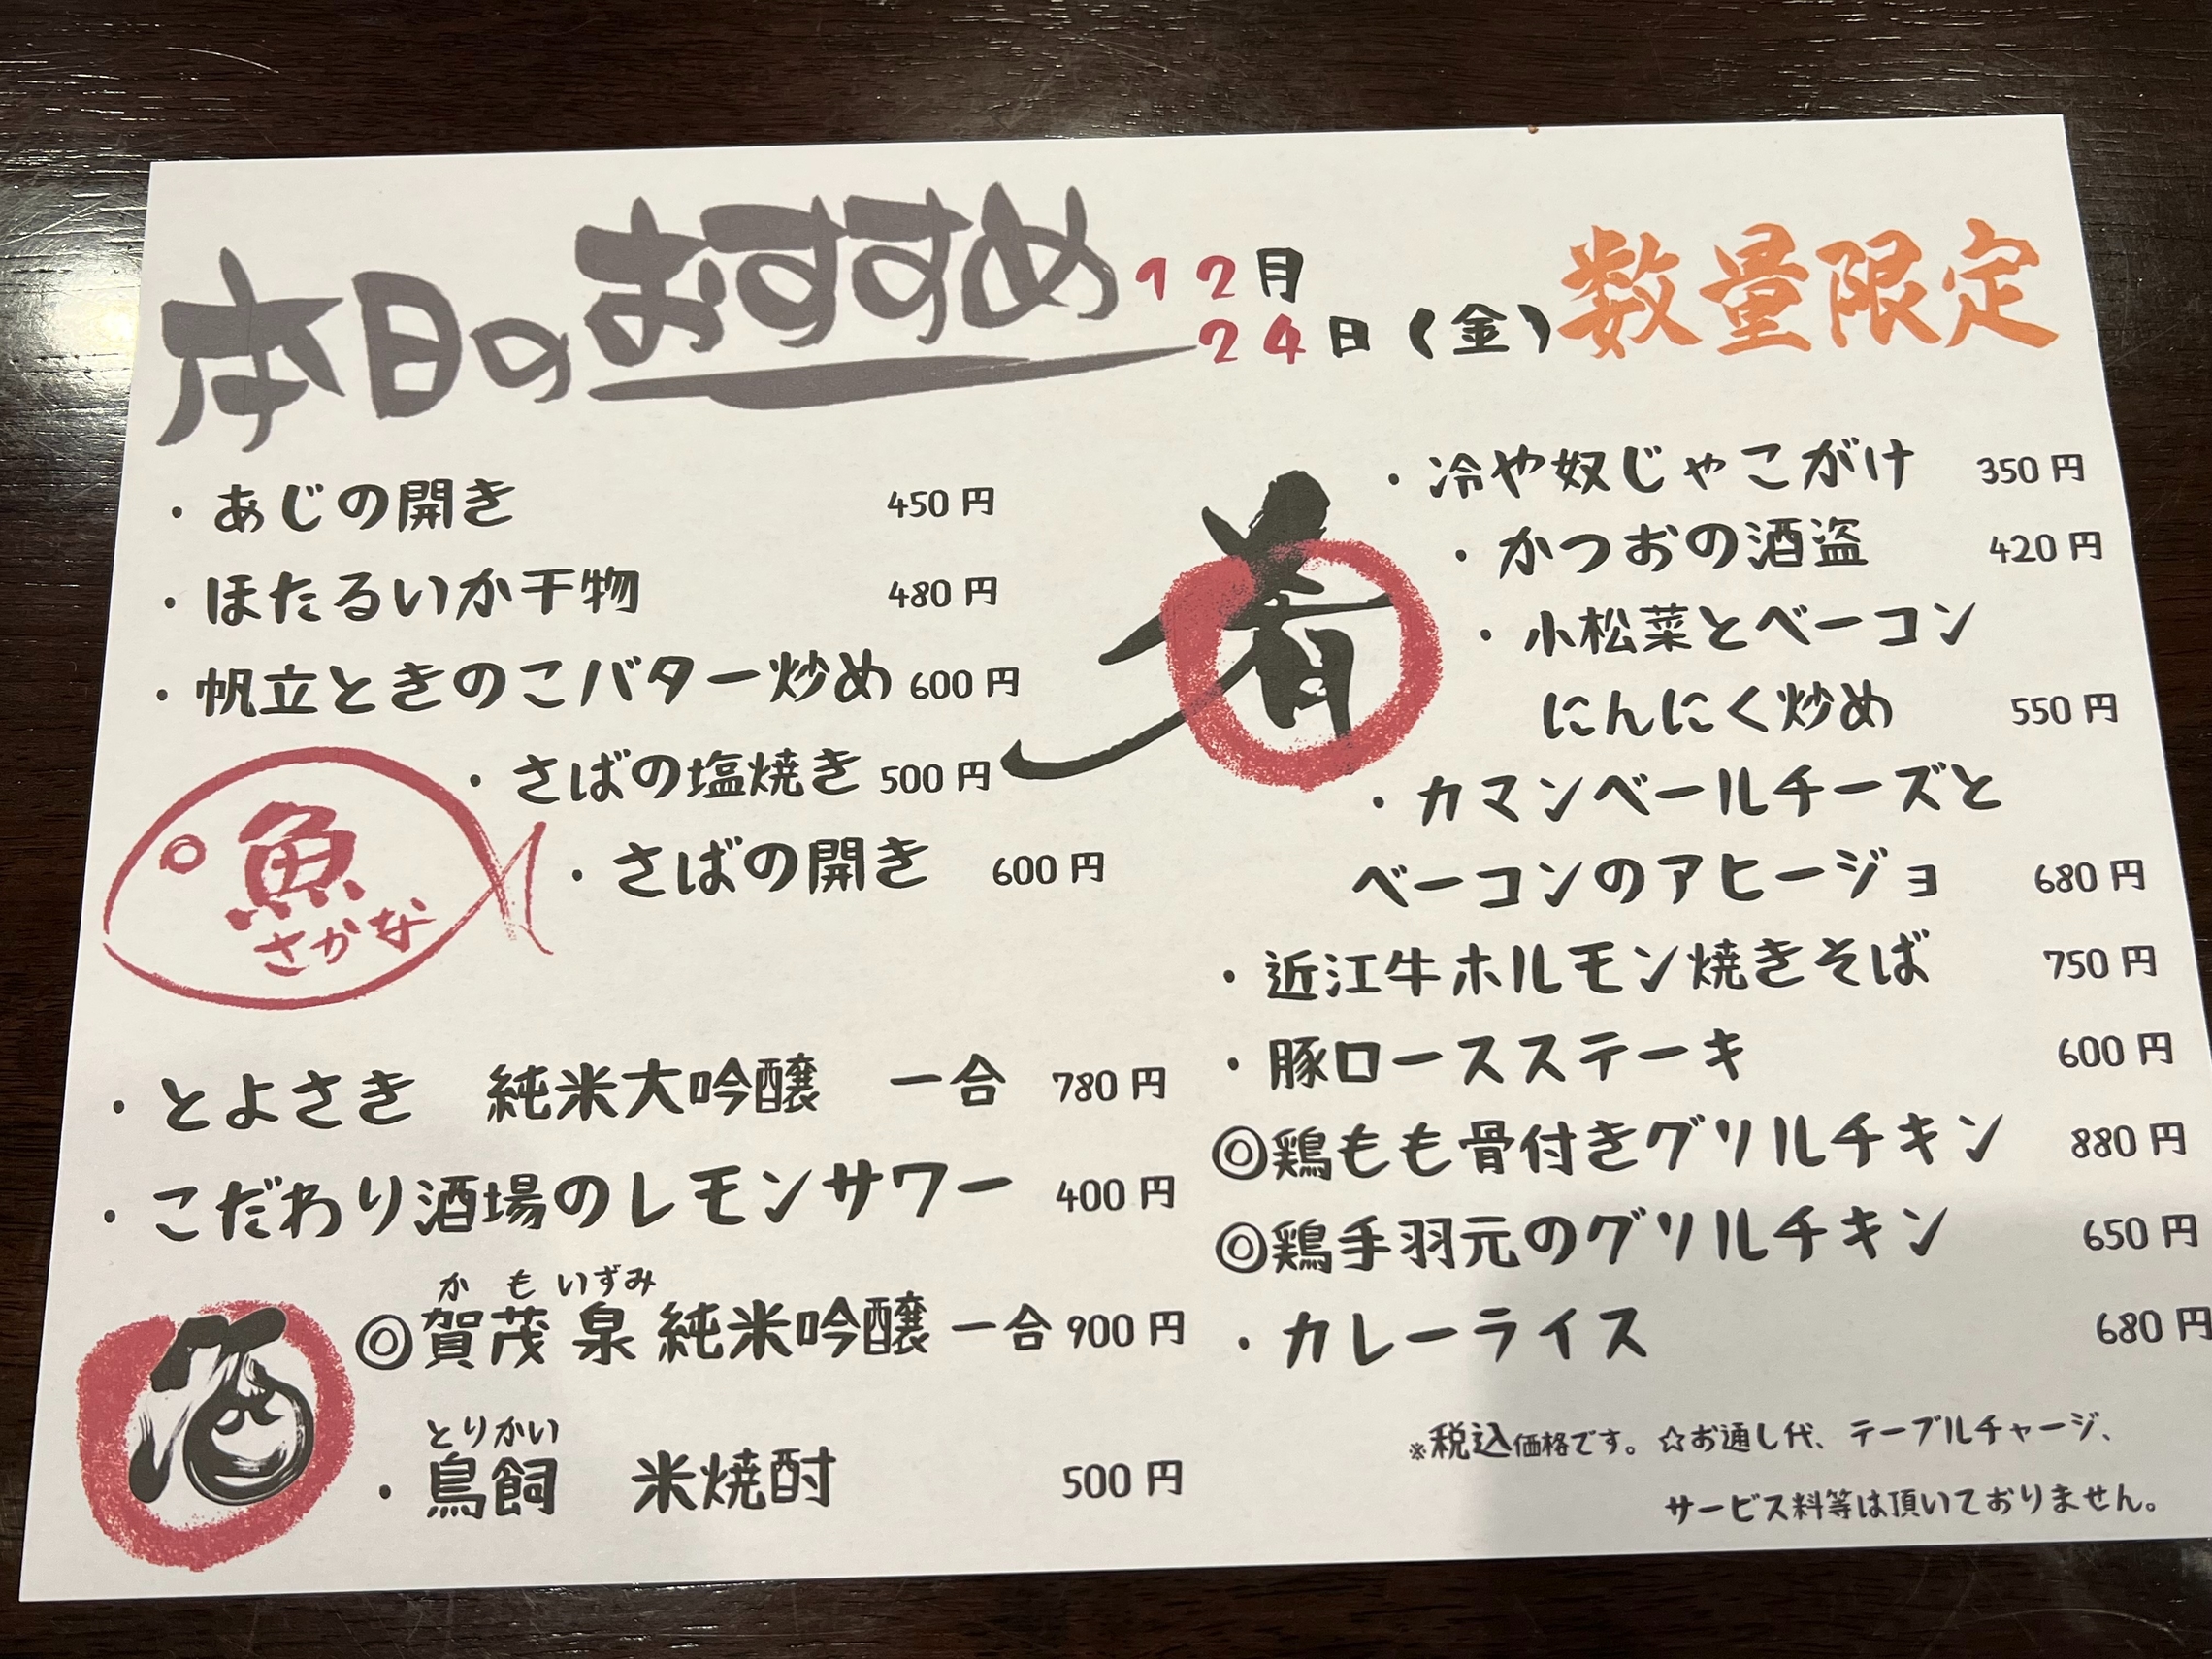 本日のおすすめ
12月
24日(金)
数量限定
・あじの開き 450円
・ほたるいか干物 480円
・帆立ときのこバター炒め 600円
・さばの塩焼き 500円
・さばの開き 600円
魚
さかな
肴
・冷や奴じゃこがけ 350円
・かつおの酒盗 420円
・小松菜とベーコン
にんにく炒め 550円
・カマンベールチーズと
ベーコンのアヒージョ 680円
・近江牛ホルモン焼きそば 750円
・豚ロースステーキ 600円
◎鶏もも骨付きグリルチキン 880円
◎鶏手羽元のグリルチキン 650円
・カレーライス 680円
・とよさき 純米大吟醸 一合 780円
・こだわり酒場のレモンサワー 400円
かもいずみ
◎賀茂泉 純米吟醸 一合 900円
とりかい
・鳥飼 米焼酎 500円
酒
※税込価格です。☆お通し代、テーブルチャージ、
サービス料等は頂いておりません。